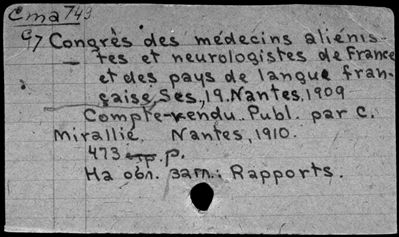 Cma 743
C7 Congrès des médecins aliénis-
tes et neurologistes de France
et des pays de langue fran-
çaise, Ses., 19. Nantes. 1909
Compte-rendu. Publ. par C.
Mirallie. Nantes, 1910.
473 p.
На обл. загл.: Rapports.